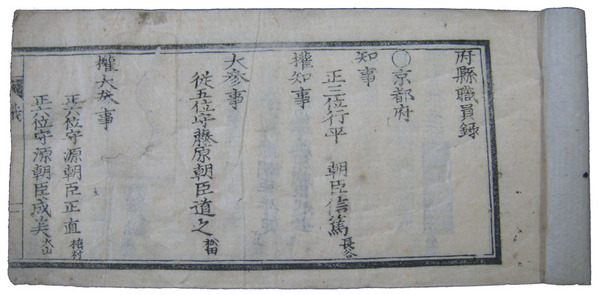 府縣職員録
〇京都府
知事
正三位行平 朝臣信篤 長谷
權知事
大參事
從五位守藤原朝臣道之 松田
權大參事
正六位守源朝臣正直 槇村
正六位守源朝臣成美 大山